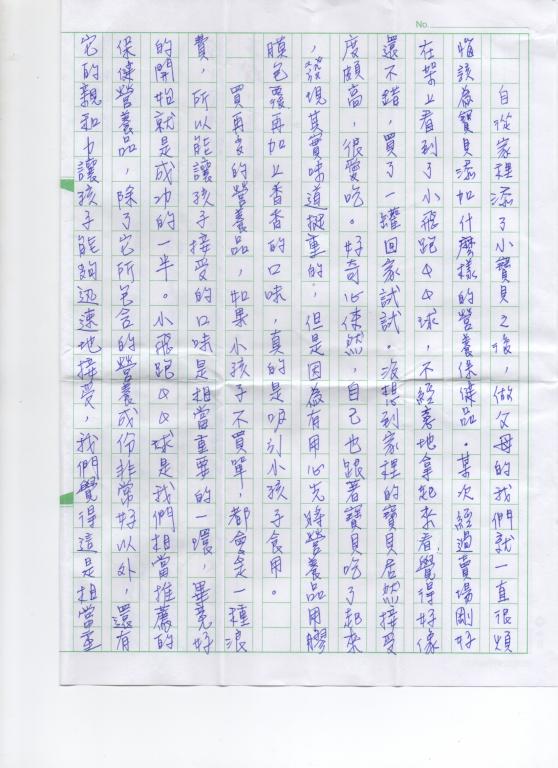 No.
自從家裡添了小寶貝之後，做父母的我們就一直很煩
惱該為寶貝添加什麼樣的營養保健品。某次經過賣場剛好
在架上看到了小飛跑QQ球，不經意地拿起來看，覺得好像
還不錯，買了一罐回家試試。沒想到家裡的寶貝居然接受
度頗高，很愛吃。好奇心使然，自己也跟著寶貝吃了起來
，發現其實味道挺重的，但是因為有用心先將營養品用膠
膜包覆再加上香香的口味，真的是吸引小孩子食用。
買再多的營養品，如果小孩子不買單，都會是一種浪
費，所以能讓孩子接受的口味是相當重要的一環，畢竟好
的開始就是成功的一半。小飛跑QQ球是我們相當推薦的
保健營養品，除了它所包含的營養成份非常好以外，還有
它的親和力讓孩子能夠迅速地接受，我們覺得這是相當重